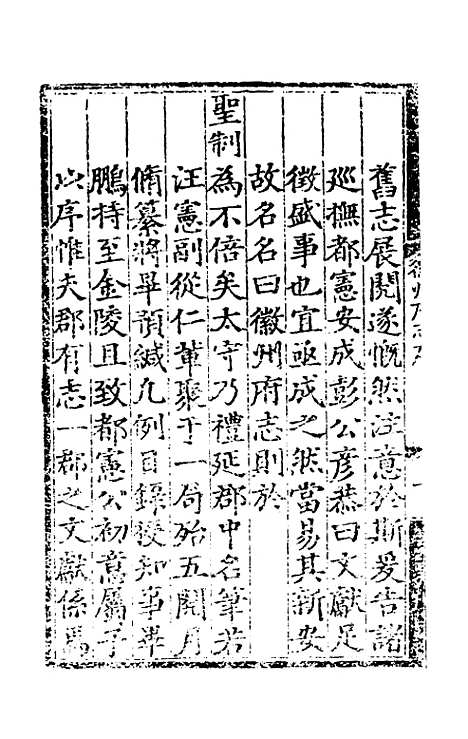 舊志展閱遂慨然注意於斯爰告諸
廵撫都憲安成彭公彥恭曰文獻足
徵盛事也宜亟成之然當易其新安
故名名曰徽州府志則於
聖制為不倍矣太守乃禮延郡中名筆若
汪憲副從仁軰聚于一局殆五閱月
脩纂將畢預緘凡例目錄授知事畢
鵬持至金陵且致都憲公初意屬予
以序惟夫郡有志一郡之文獻係焉